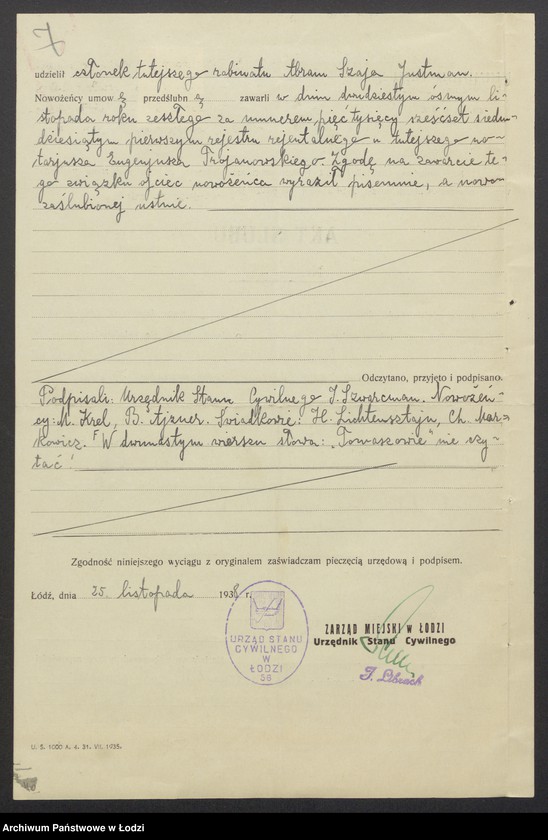 udzielił członek tutejszego rabinatu Abram Szaja Justman.
Nowożeńcy umowę przedślubną zawarli w dniu dwudziestym ósmym li-
stopada roku zeszłego za numerem pięć tysięcy sześćset siedm-
dziesiątym pierwszym rejestru rejentalnego u tutejszego no-
tarjusza Eugenjusza Trojanowskiego. Zgodę na zawarcie te-
go związku ojciec nowożeńca wyraził pisemnie, a nowo-
zaślubionej ustnie.
Odczytano, przyjęto i podpisano.
Podpisali: Urzędnik Stanu Cywilnego J. Szwarcman. Nowożeń-
cy: M. Krel, B. Ajzner. Świadkowie: H. Lichtensztajn, Ch. Mar-
kowicz. W dwunastym wierszu słowa: „Tomaszowie" nie czy-
tać
Zgodność niniejszego wyciągu z oryginałem zaświadczam pieczęcią urzędową i podpisem.
Łódź, dnia 25 listopada 1938 r.
URZĄD STANU
CYWILNEGO
W
ŁODZI
58
ZARZĄD MIEJSKI w ŁODZI
Urzędnik Stanu Cywilnego
U. S. 1000 A. 4. 31. VII. 1935.
Archiwum Państwowe w Łodzi